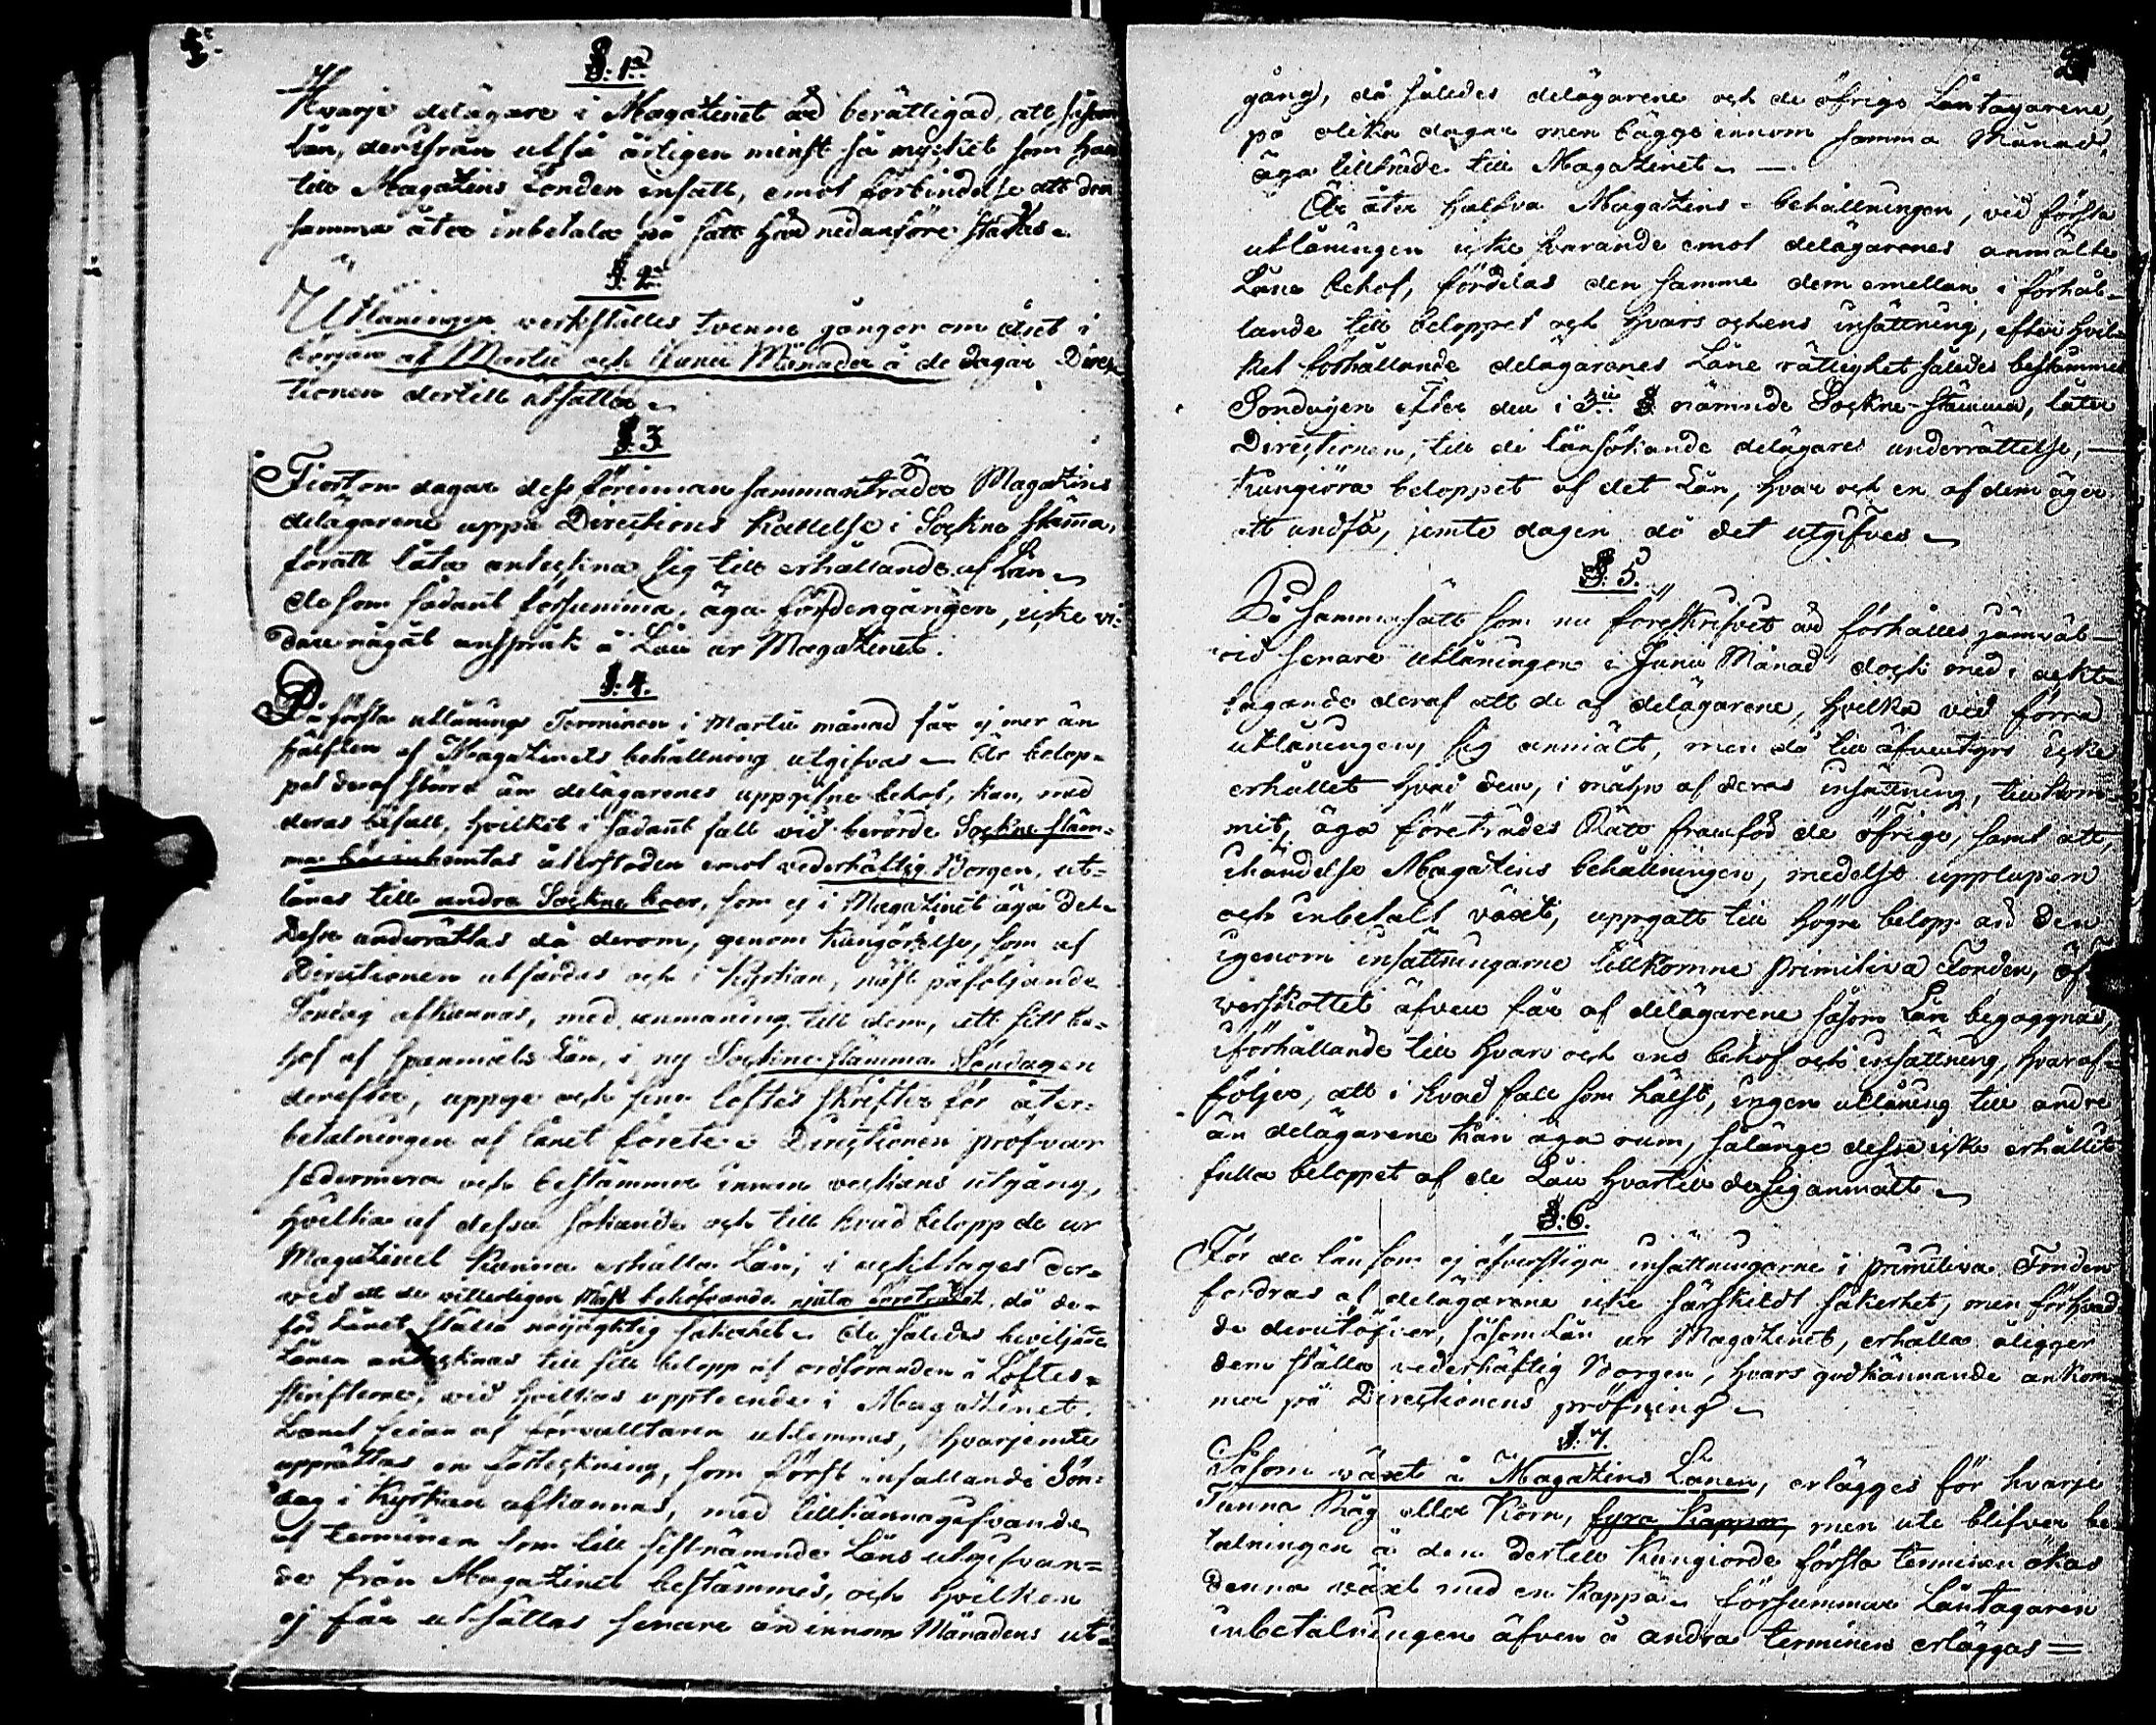 §. 1o
Hvarje delägare i Magatzinet är berättigad, att såsom
lån, derifrån utfå årligen minst så mycket som han
till Magatzins Fonden insatt, emot förbindelse att den
samma åter inbetala på sätt här nedanföre stadgas.
§. 2o
Utlåningen verkställes tvenne gånger om året i
början af Martii och Junii Månader å de dagar Direc-
tionen dertill utsätter.
§. 3
Fjorton dagar dess förinnan sammanträder Magatzins
delägarene uppå Directions kallelse i Sockne Stämma,
föratt låta anteckna sig till erhållande af Lån
de som sådant försumma, äga för den gången, icke vi-
dare något anspråk å Lån ur Magatzinet.
§. 4.
På första utlånings Terminen i Martii månad får ej mer än
hälften af Magatzinets behållning utgifvas. Är belop-
pet deraf större än delägarenes uppgifne behof, kan, med
deras bifall, hvilket i sådant fall vid berörde Sockne stäm-
ma bör inhemtas återstoden emot vederhäftig Borgen, ut-
lånas till andra Sockne boer, som ej i Magatzinet äga del.
Desse underrättas då derom, genom Kungörelse, som af
Directionen utfärdas och i Kyrkan, näst påföljande
Söndag afkunnas, med anmaning till dem, att sitt be-
hof af spanmåls Lån, i ny Sockne-stämma Söndagen
derefter, uppge och sine löftes skrifter för åter-
betalningen af lånet förete. Directionen pröfvar
sedermera och bestämmer innom veckans utgång,
hvilka af dessa sökande och till hvad belopp de ur
Magatzinet kunna erhålla Lån, i ackttages der-
vid att de villerligen mäst behöfvande njuta företrädet, då de
för Lånet ställa nöjacktig säkerhet. De således beviljade
Lånen antecknas till sitt belopp af ordföranden å Löftes-
skrifterne, vid hvilkas uppteende i Magatzinet.
Lånet sedan af förvalltaren utlemnas, hvarjemte
upprättas en förteckning, som först infallande Sön-
dag i Kyrkan afkunnas, med tillkännagifvande
af terminen som till sistnämnde Låns utgifvan-
de från Magatzinet bestämmes, och hvilken
ej får utsättas senare än innom Månadens ut-
2
gång, då således delägarene och de öfrige Låntagarene,
på olika dagar men bägge innom samma Månad
äga tillträde till Magatzinet. —
Är åter halfva Magatzins-behållningen, vid första
utlåningen icke svarande emot delägarenes anmälte
Låne behof, fördelas den samme dem emellan i förhål-
lande till beloppet och hvars ochens insättning, efter hvil-
ket förhållande delägarenes Låne rättighet således bestämmes
Söndagen efter den i 3ie § nämnde Sockne-stämma, låter
Directionen, till de lånsökande delägares underrättelse, —
Kungiöra beloppet af det Lån, hvar och en af dem äger
att undfå, jemte dagen då det utgifves
§. 5.
På samma sätt som nu föreskrifvet är förhålles jämväl —
vid senare utlåningen i Junii Månad dock med i ackt-
tagande deraf att de af delägarene, hvilka vid förra
utlåningen, sig anmält, men då till äfventyrs icke
erhållet hvad dem, i måhn af deras insättning, tillkom-
mit, äga företrädes Rätt framför de öfrige, samt att,
i händelse Magatzins behållningen, medelst upplupen
och inbetalt växt, uppgått till högre belopp än den
igenom insättningarne tillkomne primitiva Fonden, öf-
verskottet äfven får af delägarene såsom Lån begagnas,
i förhållande till hvars och ens behof och insättning, hvaraf
följer, att i hvad fall som hälst, ingen utlåning till andre
än delägarene kan äga rum, sålänge desse icke erhållit
fulla beloppet af de Lån hvartill de sig anmält
§. 6.
För de lån som ej öfverstiga insättningarne i primitiva Fonden
fordras af delägarene icke särskildt säkerhet, men för hvad
de derutöfver, såsom Lån ur Magatzinet, erhålla åligger
dem ställa vederhäftig Borgen, hvars godkännande ankom-
mer på Directionens pröfning
§. 7.
Såsom växt å Magatzins Lånen, erlägges för hvarje
Tunna Råg eller Korn, fyra Kappor, men ute blifver be-
talningen å den dertill Kungiorde första terminen ökas
denna växt med en Kappa. Försummar Låntagaren
inbetalningen äfven å andra terminen erläggas =